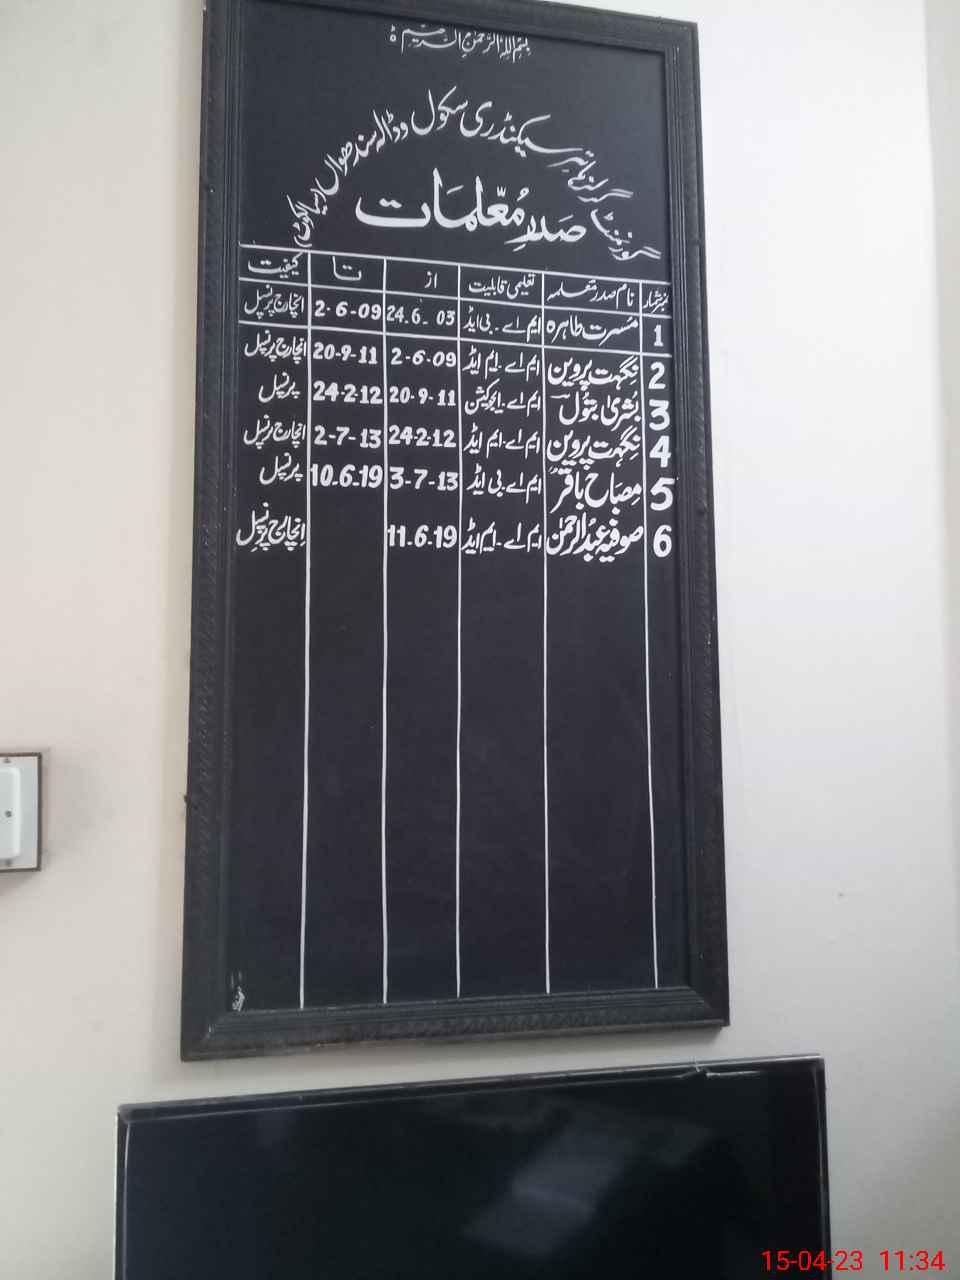 بسم اللہ الرحمن الرحیم ہ
گورنمنٹ گرلز ہائیر سیکنڈری سکول وڈالہ سندھواں (سیالکوٹ)
صدر معلمات
نمبر شمار نام صدر معلمہ تعلیمی قابلیت از تا کیفیت
1 مسرت طاہرہ ایم اے - بی ایڈ 24.6-03 2-6-09 انچارج پرنسپل
2 نگہت پروین ایم اے - ایم ایڈ 2-6-09 20-9-11 انچارج پرنسپل
3 بشریٰ بتول ایم اے - ایجوکیشن 20-9-11 24-2-12 پرنسپل
4 نگہت پروین ایم اے - ایم ایڈ 24-2-12 2-7-13 انچارج پرنسپل
5 مصباح باقر ایم اے - بی ایڈ 3-7-13 10.6.19 پرنسپل
6 صوفیہ عبدالرحمٰن ایم اے - ایم ایڈ 11.6.19 انچارج پرنسپل
15-04-23 11:34